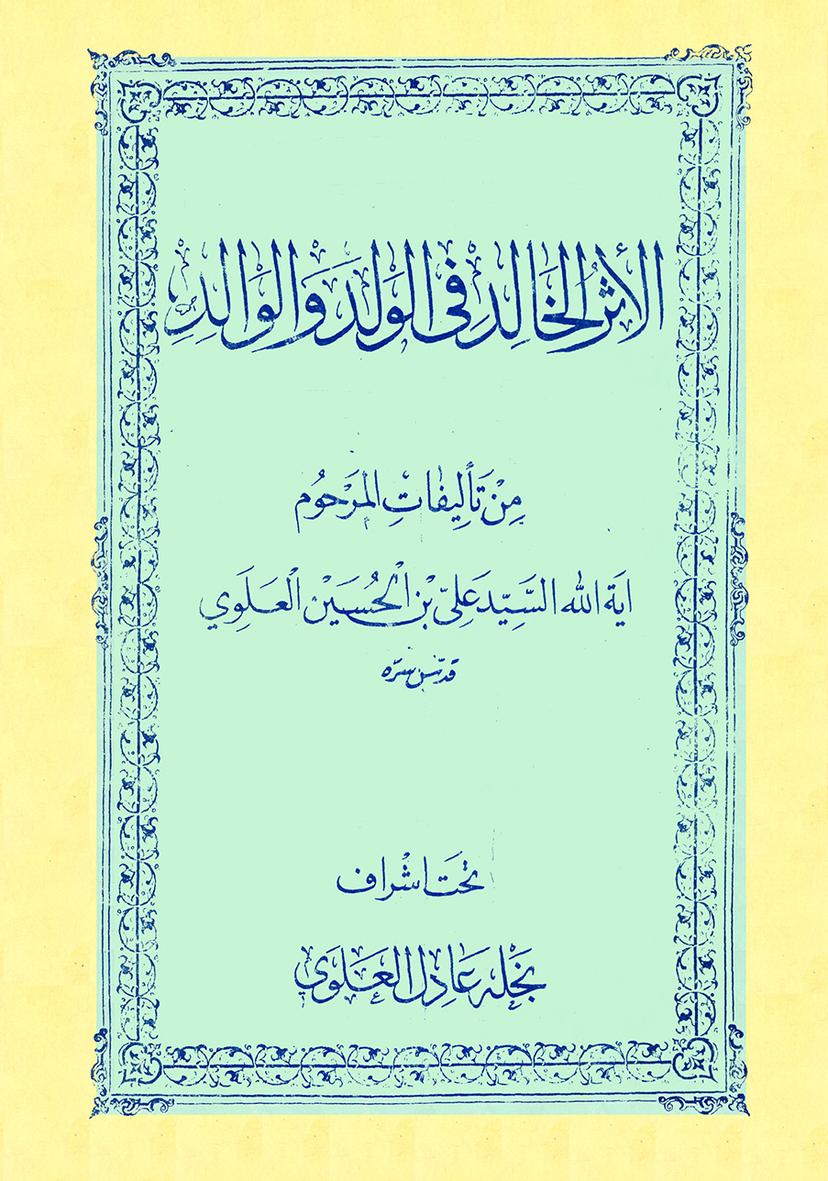 الأثر الخالد في الولد والوالد
من تأليفات المرحوم
اية الله السيد علي بن الحسين العلوي
قدس سره
تحت اشراف
نجله عادل العلوي